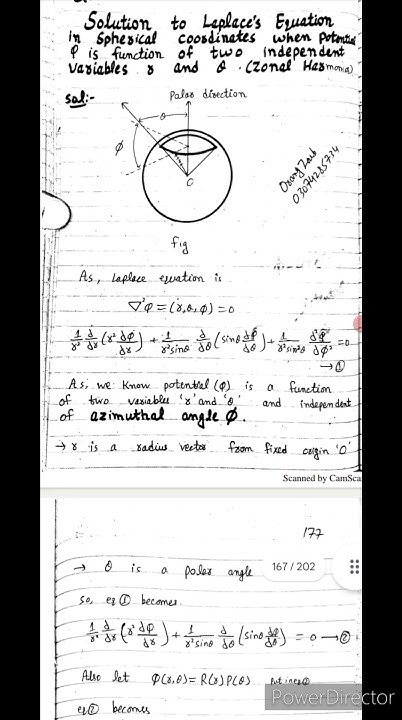 Solution to Laplace's Equation
in Spherical coordinates when potential
φ is function of two independent
variables r and θ. (Zonal Harmonia)
Sol:-
Palar direction
θ
φ
O
Orang Zaib
03074285734
fig
As, Laplace equation is
∇²φ = (r,θ,φ) = 0
1/r² d/dr (r² dφ/dr) + 1/r²sinθ d/dθ (sinθ dφ/dθ) + 1/r²sin²θ d²φ/dφ² = 0
→ ①
As, we know potential (φ) is a function
of two variables 'r' and 'θ' and independent
of azimuthal angle φ.
→ r is a radius vector from fixed origin 'O'
Scanned by CamSca
177
→ θ is a polar angle
167 / 202
so, eq ① becomes.
1/r² d/dr (r² dφ/dr) + 1/r²sinθ d/dθ (sinθ dφ/dθ) = 0 → ②
Also let φ(r,θ) = R(r)P(θ) put in eq②
eq② becomes
PowerDirector